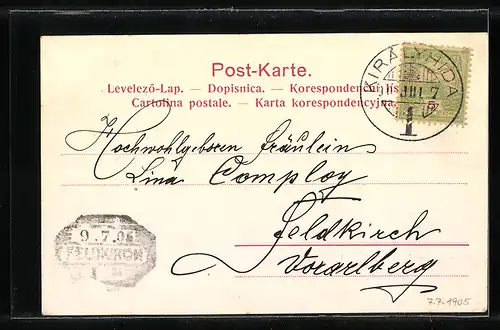 Post-Karte.
Levelező-Lap. — Dopisnica. — Korespondenční lís
Cartolina postale. — Karta korespondencyjna.
KIRÁLYHIDA
JUL 7
5
1
Hochwohlgeboren Fräulein
Lina Comploy
Feldkirch
Vorarlberg
9.7.0
FELDKIRCH
7.7.1905